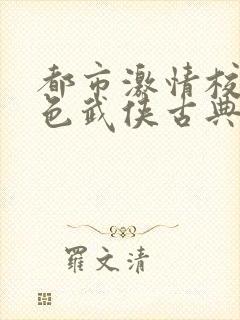 都市激情校
色武侠古典
羅文清